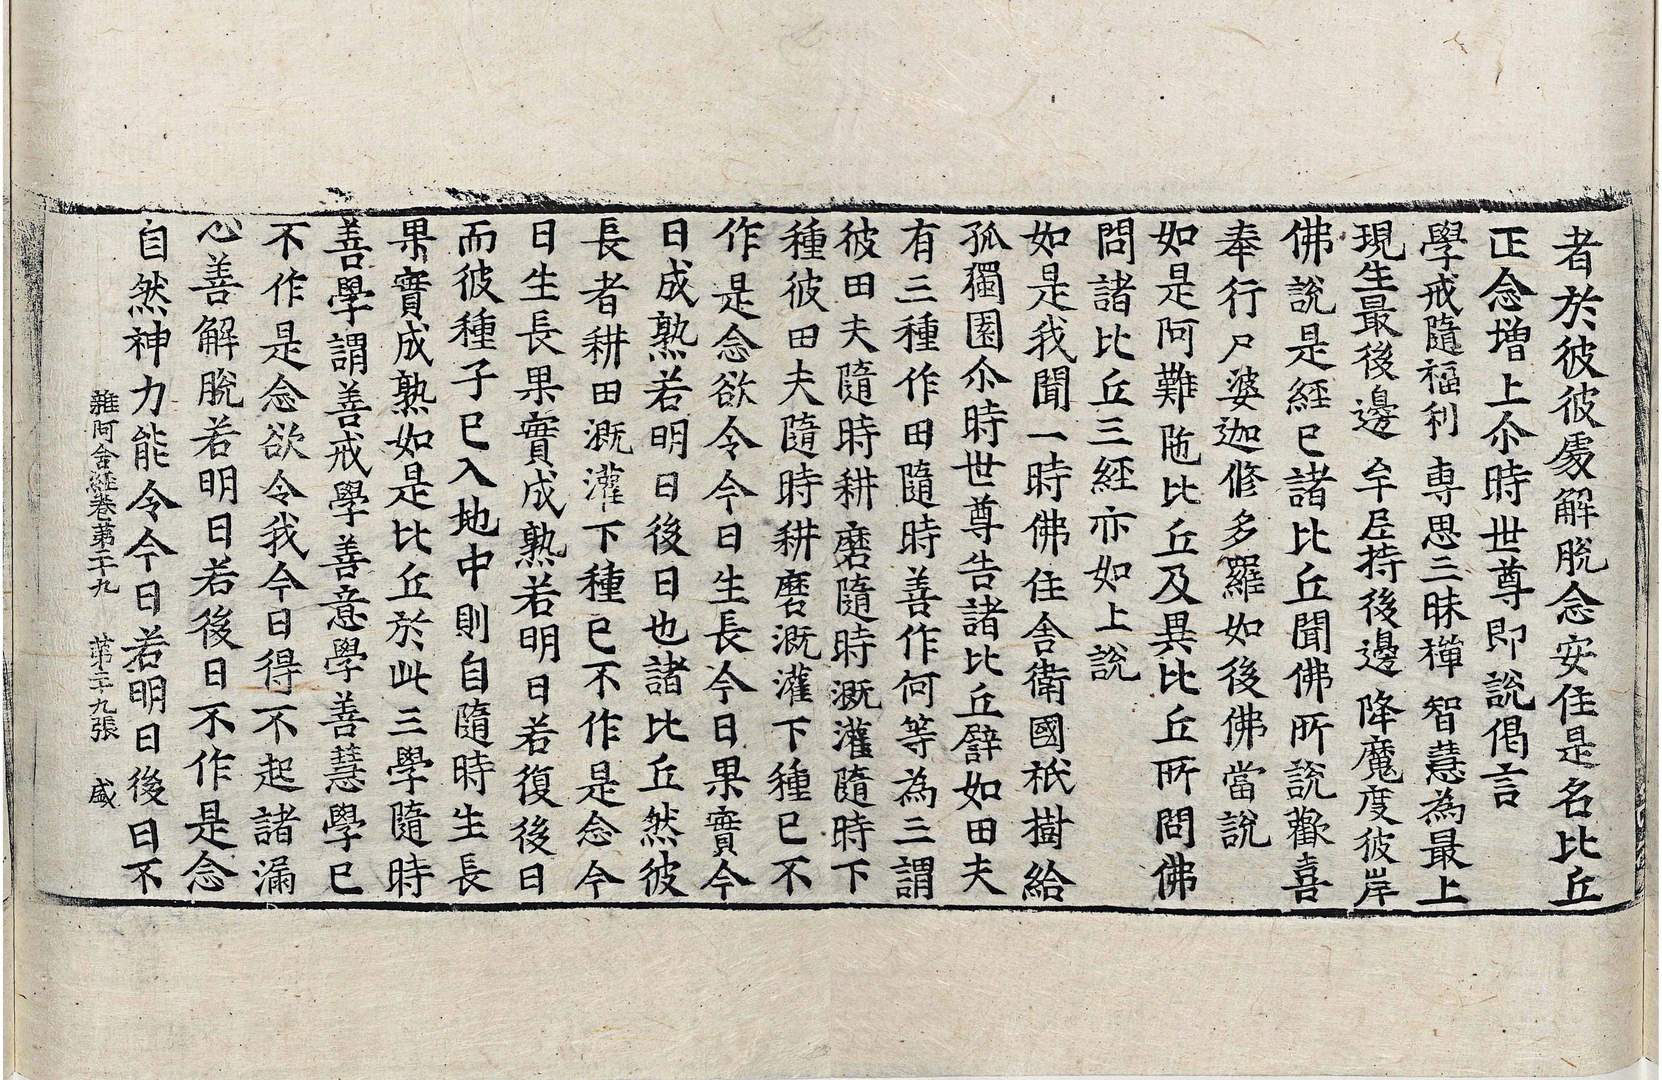 者於彼彼處解脫念安住是名比丘
正念增上尒時世尊即說偈言
學戒隨福利 専思三昧禪 智慧為最上
現生最後邊 牟尼持後邊 降魔度彼岸
佛說是經已諸比丘聞佛所說歡喜
奉行尸婆迦修多羅如後佛當說
如是阿難陁比丘及異比丘所問佛
問諸比丘三經亦如上說
如是我聞一時佛住舍衛國祇樹給
孤獨園尒時世尊告諸比丘譬如田夫
有三種作田隨時善作何等為三謂
彼田夫隨時耕磨隨時溉灌隨時下
種彼田夫隨時耕磨溉灌下種已不
作是念欲令今日生長今日果實今
日成熟若明日後日也諸比丘然彼
長者耕田溉灌下種已不作是念今
日生長果實成熟若明日若復後日
而彼種子已入地中則自隨時生長
果實成熟如是比丘於此三學隨時
善學謂善戒學善意學善慧學已
不作是念欲令我今日得不起諸漏
心善解脫若明日若後日不作是念
自然神力能令今日若明日後日不
雜阿含經卷第二十九 第二十九張 盛